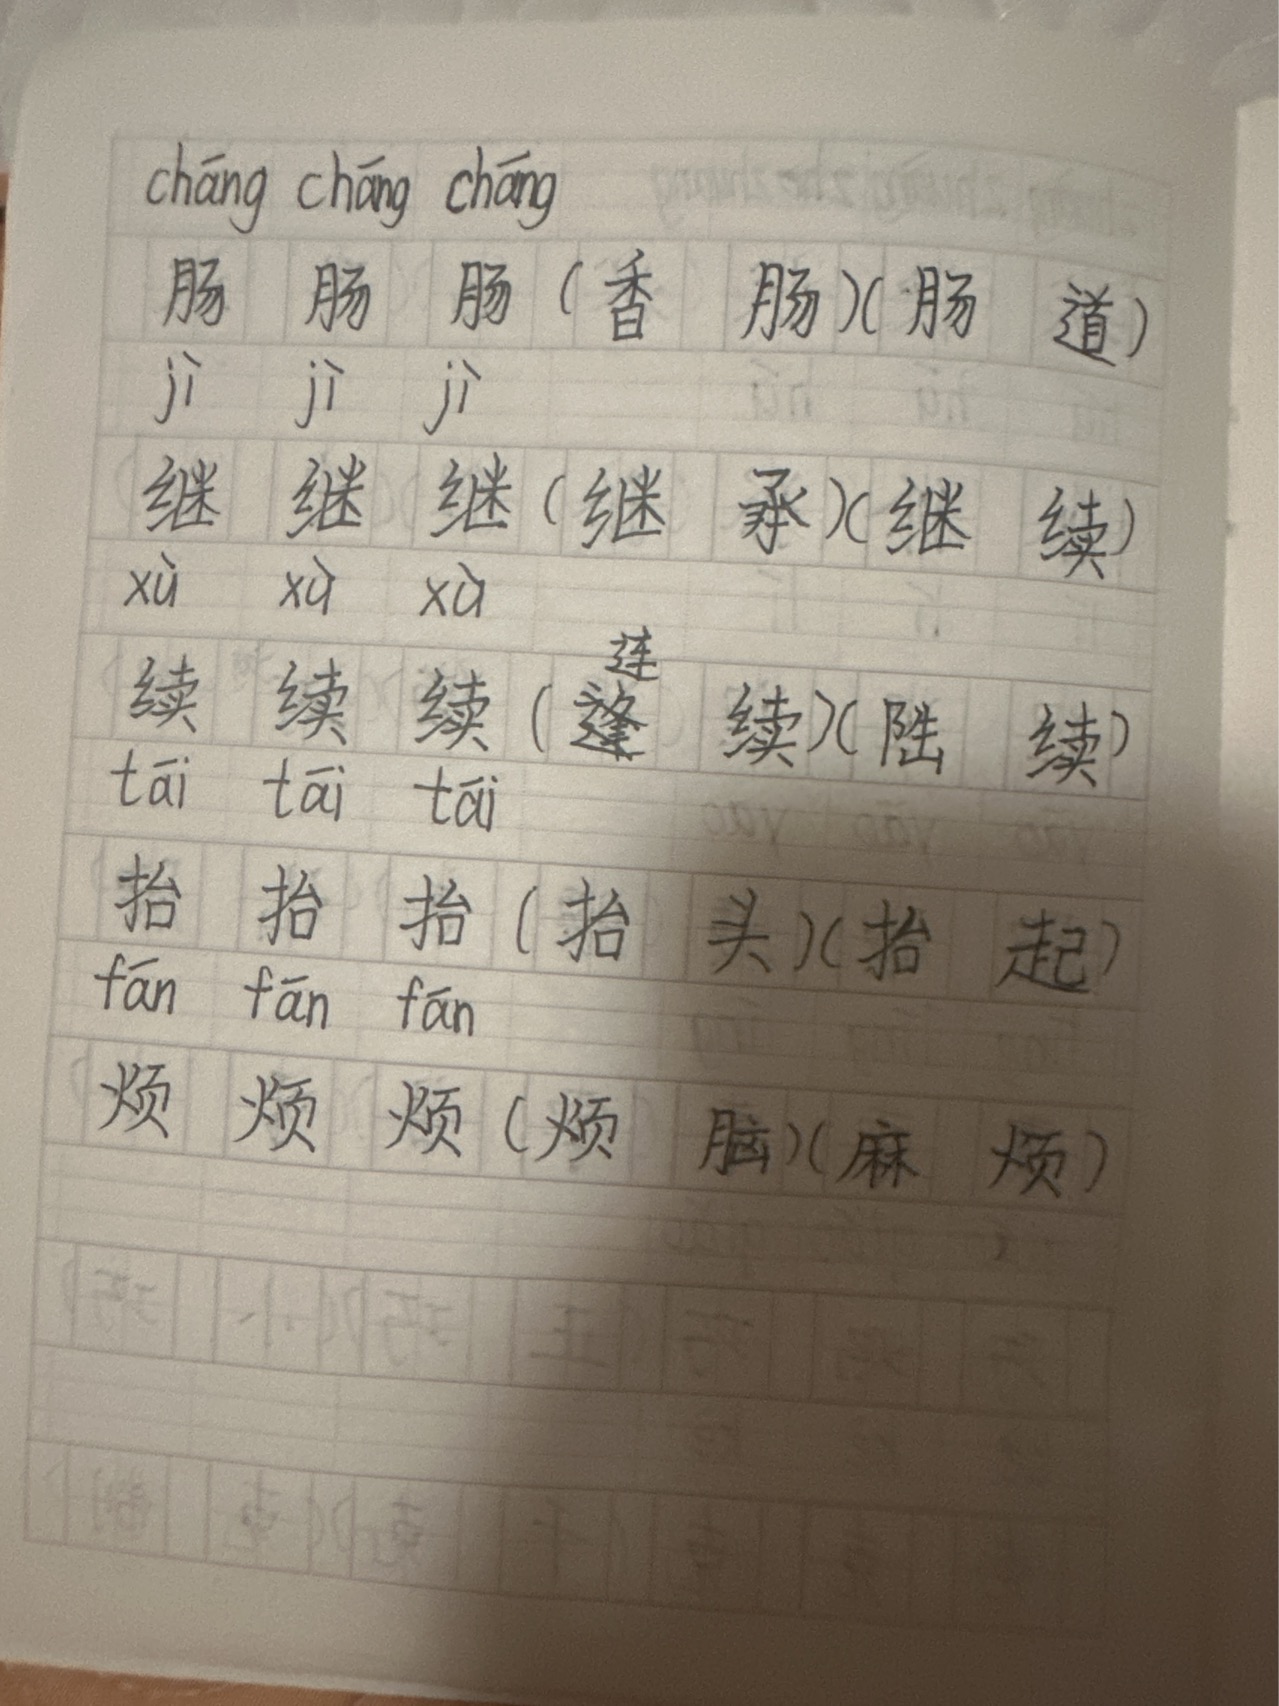 cháng cháng cháng
肠 肠 肠 (香 肠)(肠 道)
jì jì jì
继 继 继 (继 承)(继 续)
xù xù xù
连
续 续 续 ( 续)(陆 续)
tái tāi tái
抬 抬 抬 (抬 头)(抬 起)
fán fán fán
烦 烦 烦 (烦 脑)(麻 烦)